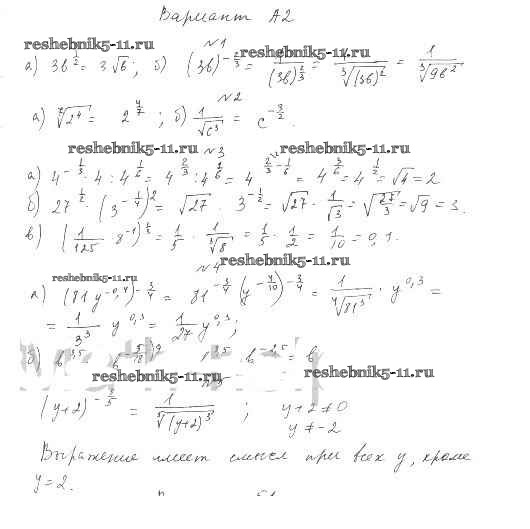 Вариант А2
reshebnik5-11.ru
№1
reshebnik5-11.ru
а) 3b^{1/2} = 3√b; б) (3b)^{-2/3} = 1/(3b)^{2/3} = 1/∛(3b)² = 1/∛9b²
№2
а) ⁷√2⁴ = 2^{4/7}; б) 1/√c³ = c^{-3/2}.
reshebnik5-11.ru
№3
reshebnik5-11.ru
а) 4^{-1/3} · 4 : 4^{1/6} = 4^{2/3} : 4^{1/6} = 4^{2/3 - 1/6} = 4^{3/6} = 4^{1/2} = √4 = 2
б) 27^{1/2} · (3^{-1/4})² = √27 · 3^{-1/2} = √27 · 1/√3 = √27/3 = √9 = 3.
в) (1/125 · 8^{-1})^{1/3} = 1/5 · 1/∛8 = 1/5 · 1/2 = 1/10 = 0,1.
reshebnik5-11.ru
№4
reshebnik5-11.ru
а) (81y^{-0,4})^{-3/4} = 81^{-3/4} (y^{-4/10})^{-3/4} = 1/⁴√81³ · y^{0,3} =
= 1/3³ y^{0,3} = 1/27 y^{0,3};
б) b^{-2,5} = b
reshebnik5-11.ru
reshebnik5-11.ru
(y+2)^{-3/5} = 1/⁵√(y+2)³ ; y+2≠0
y≠-2
Выражение имеет смысл при всех y, кроме
y=2.